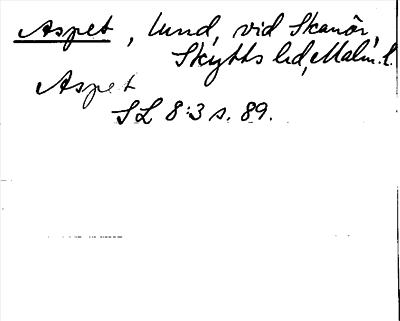 Aspet, lund, vid Skanör,
Skytts hd, Malm. l.
Aspet
SL 8:3 s. 89.